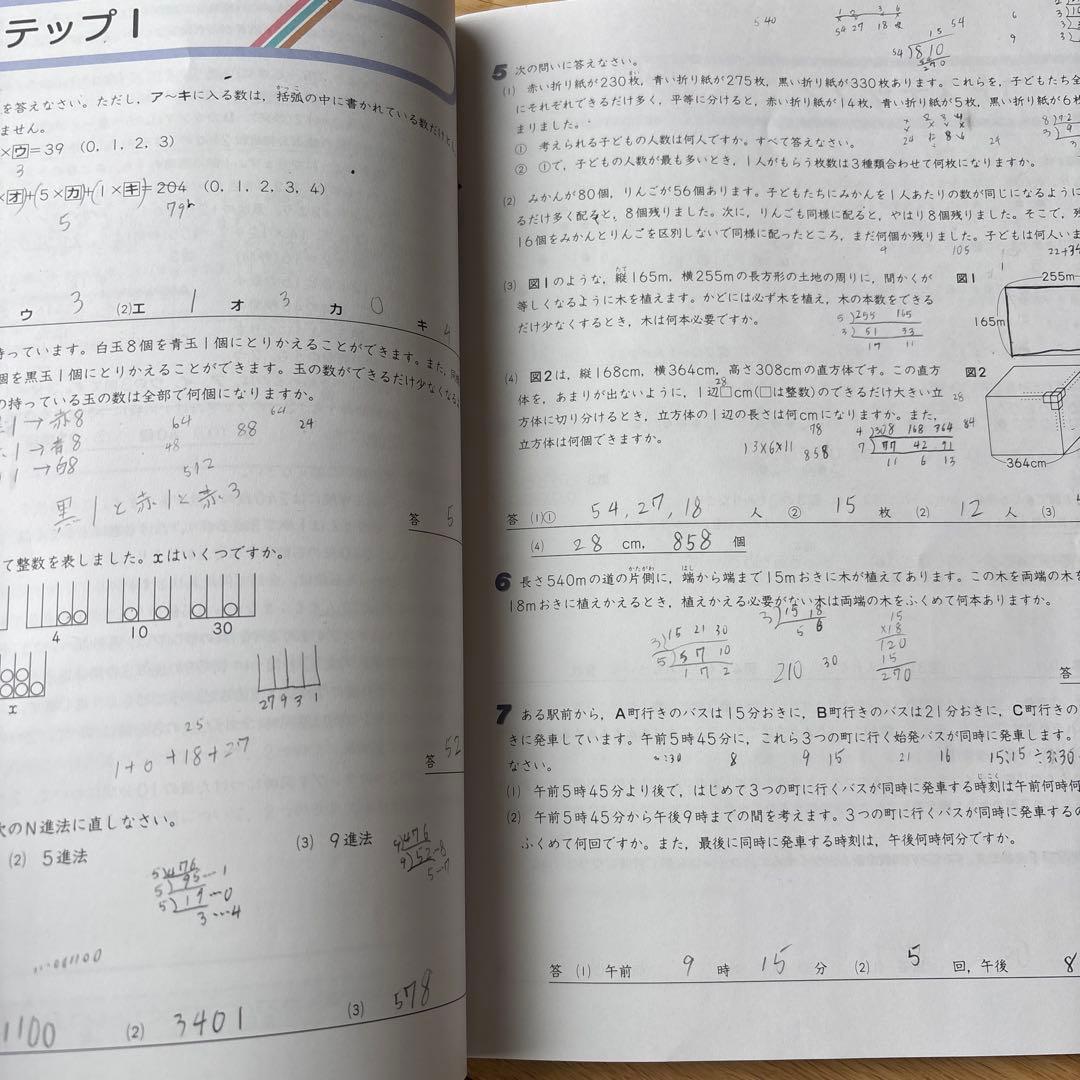 テップ1
を答えなさい。ただし，ア〜キに入る数は，括弧の中に書かれている数だけとし
ません。
×ウ=39 (0，1，2，3)
3
×オ)+(5×カ)+(1×キ)=204 (0，1，2，3，4)
5
79
ウ 3 (2)エ 1 オ 3 カ 0 キ 4
持っています。白玉8個を青玉1個にとりかえることができます。また，同様
個を黒玉1個にとりかえることができます。玉の数ができるだけ少なくなる
の持っている玉の数は全部で何個になりますか。
1→赤8
64 64
1→青8
48 88 24
1→白8
512
黒1と赤1と赤3
答 5
て整数を表しました。xはいくつですか。
4 10 30
x
27 9 3 1
25
1+0+18+27
答 52
次のN進法に直しなさい。
(2) 5進法
(3) 9進法
5)476
5)95…1
5)19…0
3…4
9)476
9)52…8
5…7
1100 (2) 3401 (3) 578
540
54 27 18
15 54
54)810
270
6
9
5 次の問いに答えなさい。
(1) 赤い折り紙が230枚，青い折り紙が275枚，黒い折り紙が330枚あります。これらを，子どもたち全
にそれぞれできるだけ多く，平等に分けると，赤い折り紙が14枚，青い折り紙が5枚，黒い折り紙が6枚
まりました。
① 考えられる子どもの人数は何人ですか。すべて答えなさい。
② ①で，子どもの人数が最も多いとき，1人がもらう枚数は3種類合わせて何枚になりますか。
(2) みかんが80個，りんごが56個あります。子どもたちにみかんを1人あたりの数が同じになるように
るだけ多く配ると，8個残りました。次に，りんごも同様に配ると，やはり8個残りました。そこで，残
16個をみかんとりんごを区別しないで同様に配ったところ，まだ何個か残りました。子どもは何人いま
9 105 22+34
(3) 図1のような，縦165m，横255mの長方形の土地の周りに，間かくが
等しくなるように木を植えます。かどには必ず木を植え，木の本数をできる
だけ少なくするとき，木は何本必要ですか。
5)255 165
3)51 33
17 11
図1
255m
165m
(4) 図2は，縦168cm，横364cm，高さ308cmの直方体です。この直方
体を，あまりが出ないように，1辺□cm(□は整数)のできるだけ大きい立
方体に切り分けるとき，立方体の1辺の長さは何cmになりますか。また，
立方体は何個できますか。
28
13×6×11
78
858
4)308 168 364
7)77 42 91
11 6 13
28
84
図2
364cm
答 (1)① 54，27，18 人 ② 15 枚 (2) 12 人 (3)
(4) 28 cm， 858 個
6 長さ540mの道の片側に，端から端まで15mおきに木が植えてあります。この木を両端の木を
18mおきに植えかえるとき，植えかえる必要がない木は両端の木をふくめて何本ありますか。
3)15 21 30
5)5 7 10
1 7 2
3)15 18
5 6
210 30
15
×18
120
15
270
答
7 ある駅前から，A町行きのバスは15分おきに，B町行きのバスは21分おきに，C町行きの
きに発車しています。午前5時45分に，これら3つの町に行く始発バスが同時に発車します。
なさい。
8 9 15 21 16 15:15÷3:30
(1) 午前5時45分より後で，はじめて3つの町に行くバスが同時に発車する時刻は午前何時何
(2) 午前5時45分から午後9時までの間を考えます。3つの町に行くバスが同時に発車するの
ふくめて何回ですか。また，最後に同時に発車する時刻は，午後何時何分ですか。
答 (1) 午前 9 時 15 分 (2) 5 回，午後 8